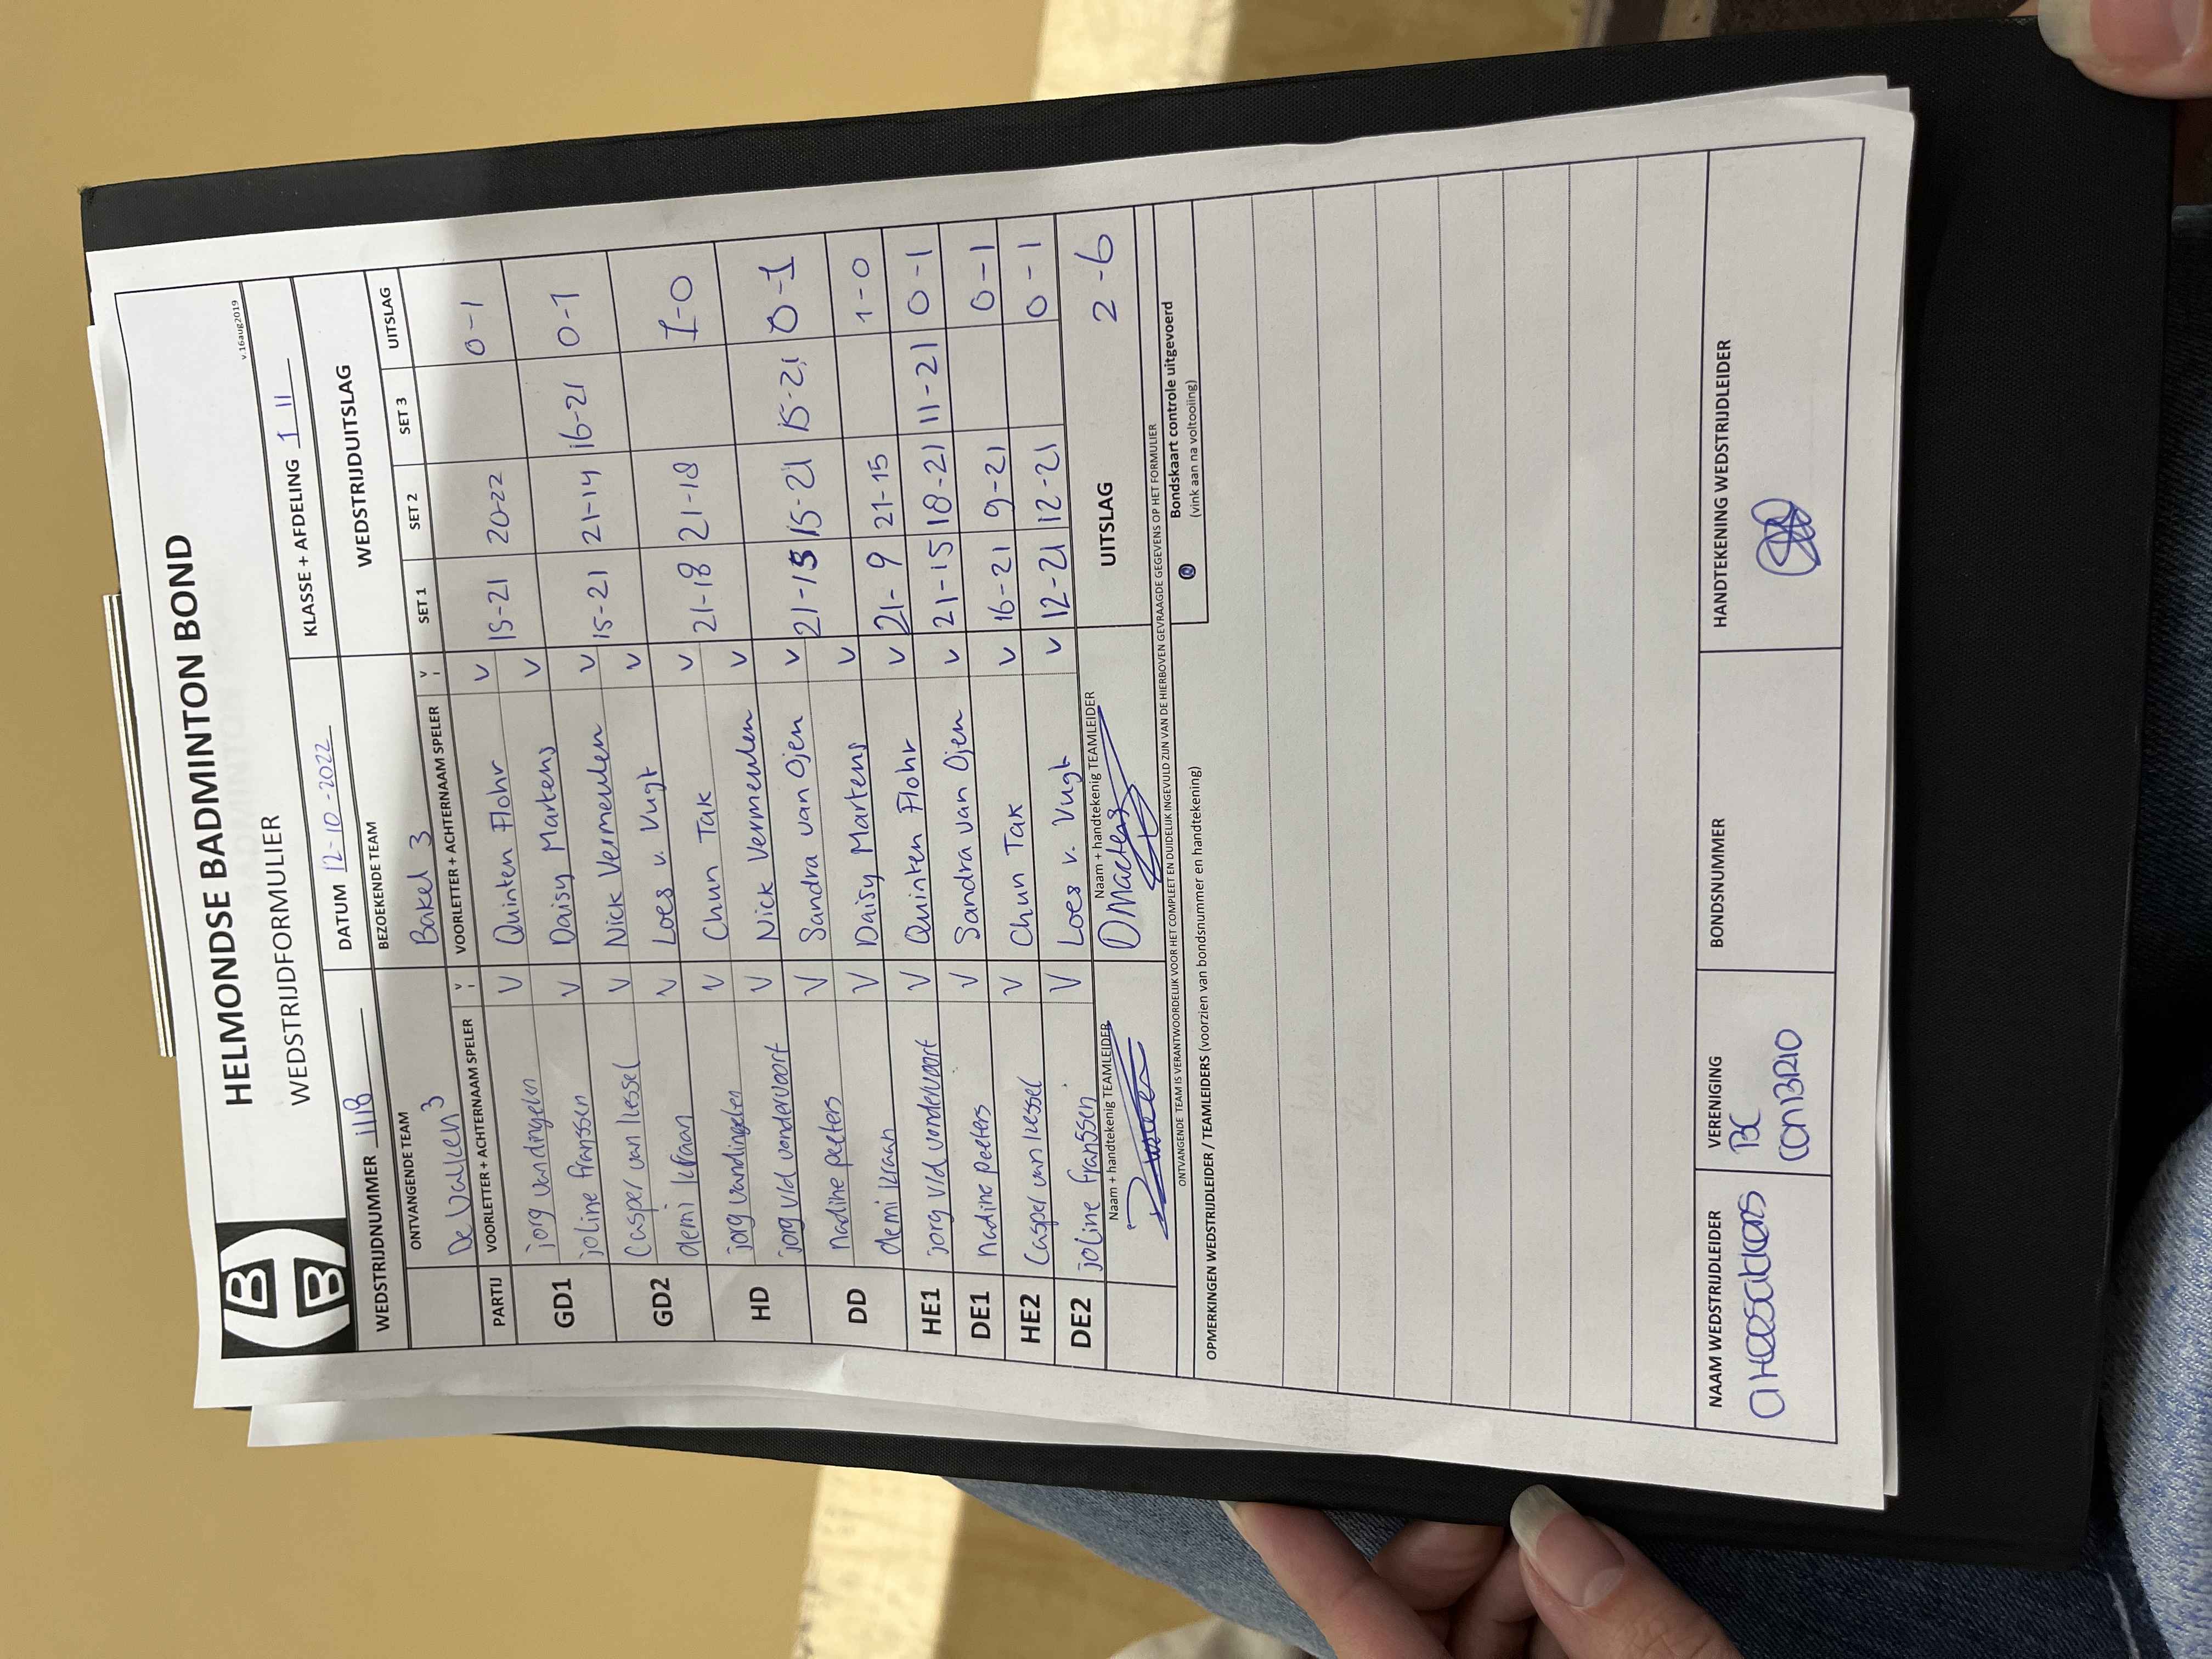 HELMONDSE BADMINTON BOND
WEDSTRIJDFORMULIER
v.16aug2019
WEDSTRIJDNUMMER 1118 DATUM 12-10-2022 KLASSE + AFDELING 1 11
ONTVANGENDE TEAM BEZOEKENDE TEAM WEDSTRIJDUITSLAG
De Valken 3 Bakel 3
PARTIJ VOORLETTER + ACHTERNAAM SPELER V VOORLETTER + ACHTERNAAM SPELER V SET 1 SET 2 SET 3 UITSLAG
GD1 jorg vandingelen V Quinten Flohr V 15-21 20-22 0-1
joline franssen V Daisy Martens V
GD2 Casper van liessel V Nick Vermeulen V 15-21 21-14 16-21 0-1
demi kraan V Loes v. Vugt V
HD jorg vandingelen V Chun Tak V 21-18 21-18 1-0
jorg v/d vondervoort V Nick Vermeulen V
DD nadine peeters V Sandra van Ojen V 21-15 15-21 15-21 0-1
demi kraan V Daisy Martens V
HE1 jorg v/d vondervoort V Quinten Flohr V 21-9 21-15 1-0
DE1 nadine peeters V Sandra van Ojen V 21-15 18-21 11-21 0-1
HE2 Casper van liessel V Chun Tak V 16-21 9-21 0-1
DE2 joline franssen V Loes v. Vugt V 12-21 12-21 0-1
Naam + handtekenig TEAMLEIDER Naam + handtekenig TEAMLEIDER UITSLAG 2-6
DMartens
ONTVANGENDE TEAM IS VERANTWOORDELIJK VOOR HET COMPLEET EN DUIDELIJK INGEVULD ZIJN VAN DE HIERBOVEN GEVRAAGDE GEGEVENS OP HET FORMULIER
OPMERKINGEN WEDSTRIJDLEIDER / TEAMLEIDERS (voorzien van bondsnummer en handtekening)
Bondskaart controle uitgevoerd
(vink aan na voltooiing)
NAAM WEDSTRIJDLEIDER VERENIGING BONDSNUMMER HANDTEKENING WEDSTRIJDLEIDER
BC
CONBRIO